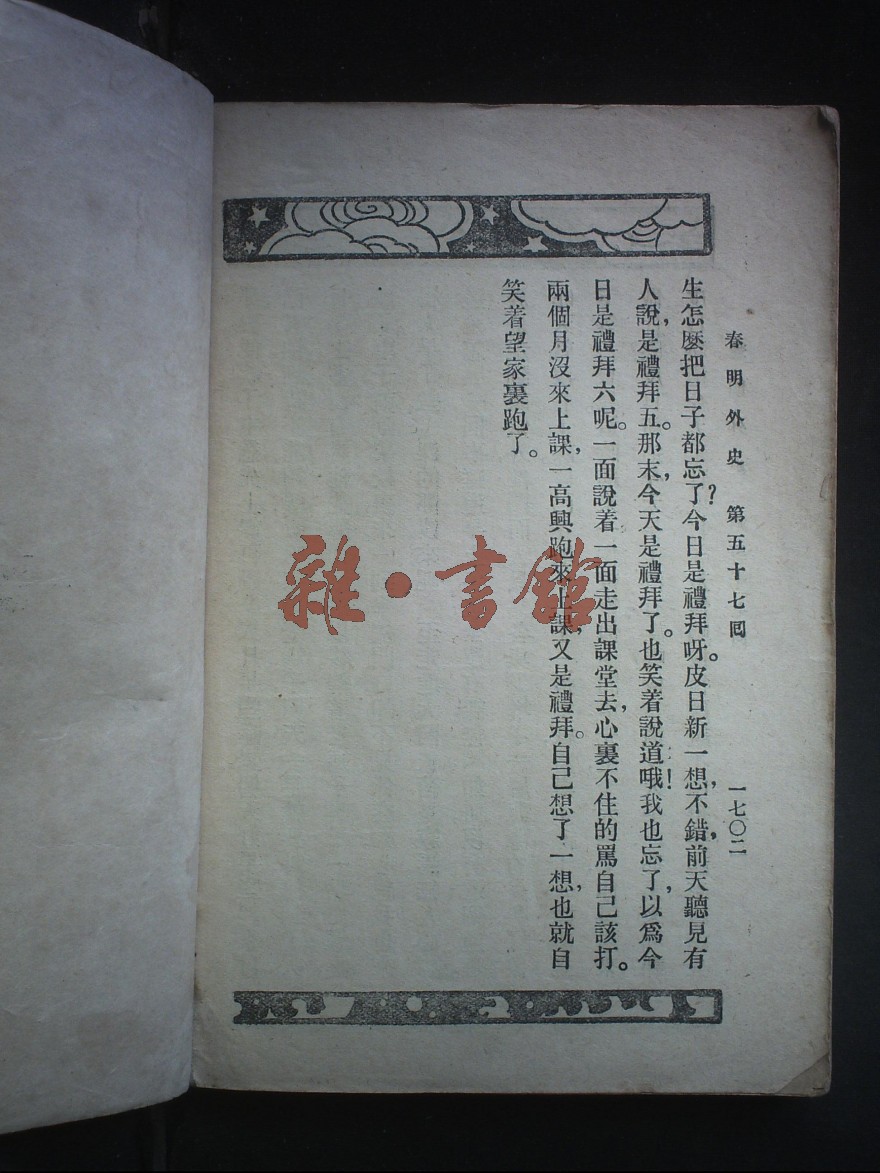 春明外史 第五十七囘 一七〇二
生怎麽把日子都忘了?今日是禮拜呀。皮日新一想,不錯,前天聽見有
人說,是禮拜五。那末,今天是禮拜了。也笑着說道:哦!我也忘了,以爲今
日是禮拜六呢。一面說着一面走出課堂去,心裏不住的罵自己該打。
兩個月沒來上課,一高興跑來上課,又是禮拜。自己想了一想,也就自
笑着望家裏跑了。
雜·書館